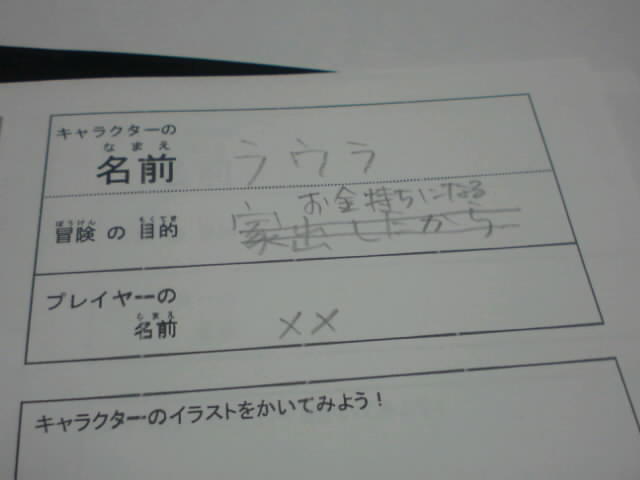 キャラクターの
なまえ
名前
ラウラ
お金持ちになる
ぼうけん もくてき
冒険 の 目的
家出したから
プレイヤーの
なまえ
名前
××
キャラクターのイラストをかいてみよう！